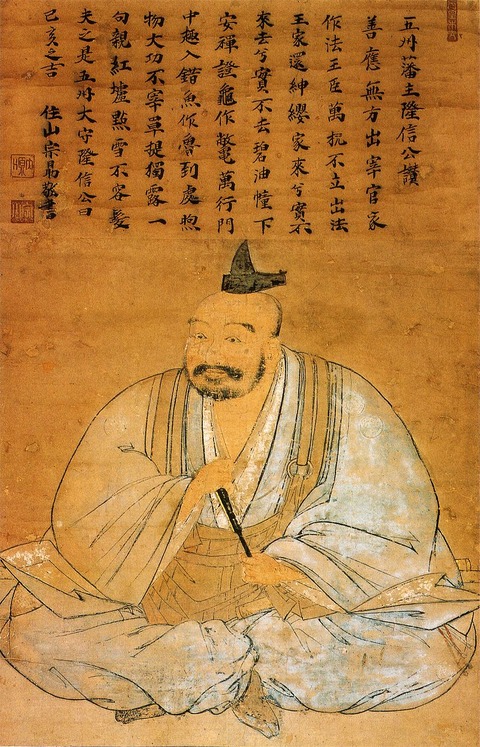 五州藩主隆信公讃
善應無方出宰官家
作法王臣萬机不立出法
王家還紳纓家來兮實不
來去兮實不去碧油幢下
安禪證龜作鼈萬行門
中趣入錯魚作魯到處煦
物大功不宰單提獨露一
句親紅壚點雪不容髪
夫之是五州大守隆信公曰
己亥之吉 住山宗 敬書